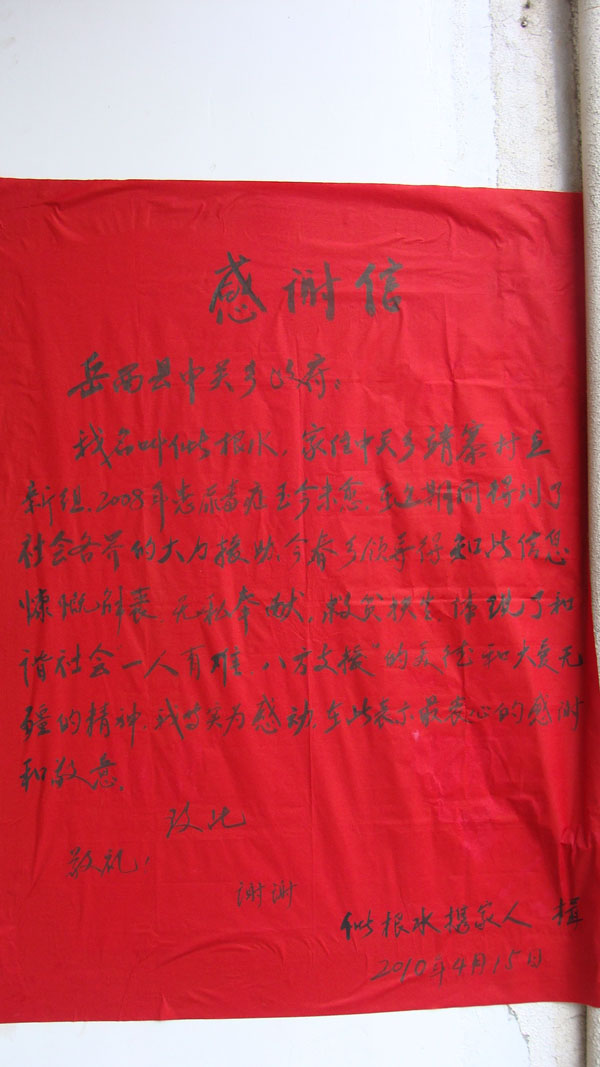 感谢信
岳西县中关乡政府。
我名叫似根水，家住中关乡请寨村立
新组，2008年患尿毒症至今未愈，在此期间得到了
社会各界的大力援助，今春乡领导得知此信息
慷慨解囊，无私奉献，救贫扶危，体现了和
谐社会一人有难，八方支援"的美德和大爱无
疆的精神，我等实为感动，在此表示最衷心的感谢
和敬意。
致此
敬礼！
谢谢
似根水携家人 揖
2010年4月15日